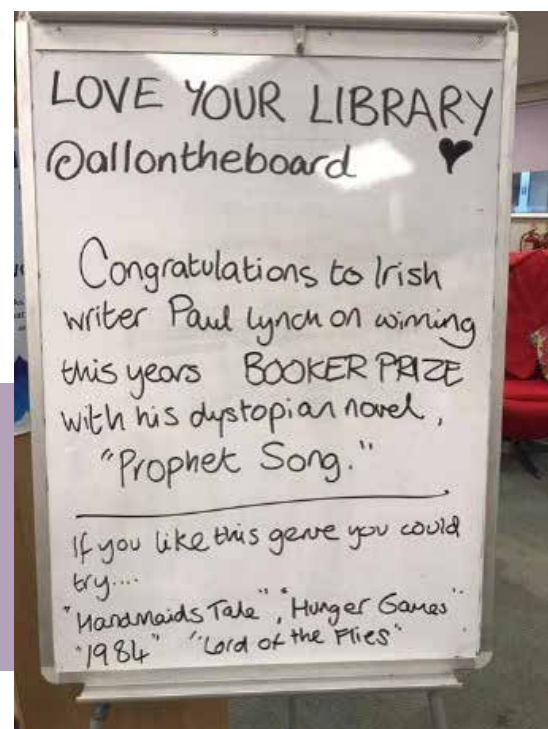 LOVE YOUR LIBRARY
@allontheboard ♥
Congratulations to Irish
writer Paul Lynch on winning
this years BOOKER PRIZE
with his dystopian novel,
"Prophet Song."
If you like this genre you could
try....
"Handmaids Tale", "Hunger Games"
"1984" "Lord of the Flies"